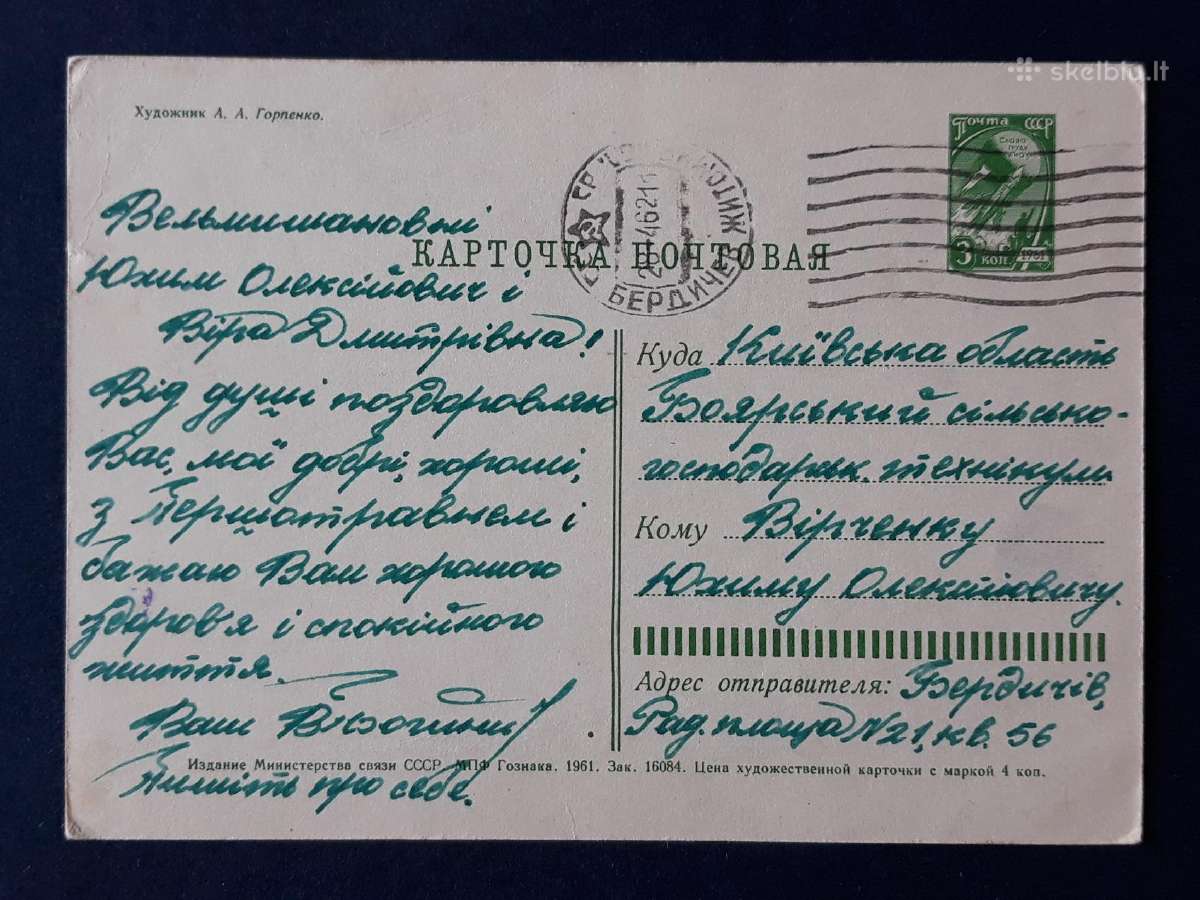 skelbiu.lt
Художник А. А. Горпенко.
ПОЧТА СССР
3 КОП. 1961
БЕРДИЧЕВ ЖИТОМ
КАРТОЧКА ПОЧТОВАЯ
Вельмишановні
Юхим Олексійович і
Віра Дмитрівна!
Від душі поздоровляю
Вас, мої добрі, хороші,
з Першотравнем і
бажаю Вам хорошого
здоров'я і спокійного
життя.
Ваш
Пишіть про себе.
Куда Київська область
Боярський сільсько-
господарськ. технікум
Кому Вірченку
Юхиму Олексійовичу.
Адрес отправителя: Бердичів,
Рад. площа N21, кв. 56
Издание Министерства связи СССР. МПФ Гознака. 1961. Зак. 16084. Цена художественной карточки с маркой 4 коп.